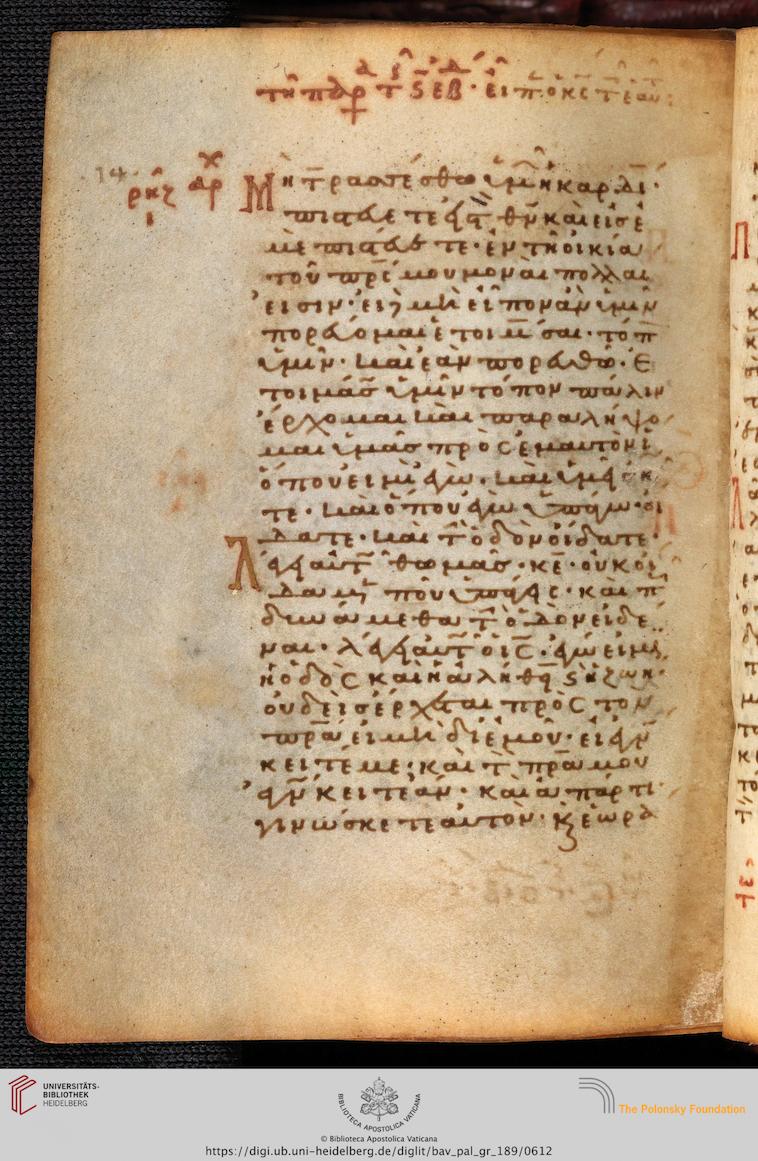 τῆ παρ τ ς ἑβ · εἶπ ὁ κς τ ἑαυ
14
ρκζ αρ
ι
Μὴ ταρασσέσθω ὑμῶν ἡ καρδι
πιστεύετε εἰς τ θν καὶ εἰς ἐ
μὲ πιστεύετε · ἐν τῆ οἰκία
τοῦ πρς μου μοναὶ πολλαὶ
εἰσιν · εἰ δὲ μὴ εἶπον ἂν ὑμῖν
πορεύομαι ἑτοιμάσαι · τόπ
ὑμῖν · καὶ ἐὰν πορευθῶ · ἑ
τοιμάσω ὑμῖν τόπον πάλιν
ἔρχομαι καὶ παραλήψο
μαι ὑμᾶς πρὸς ἐμαυτὸν ἵ
ὅπου εἰμὶ ἐγὼ · καὶ ὑμεῖς ἦ
τε · καὶ ὅπου ἐγὼ ὑπάγω · οἴ
δατε · καὶ τ ὁδὸν οἴδατε ·
Λέγει αυτ θωμᾶς · κε · οὐκ οἴ
δαμεν ποῦ ὑπάγεις · καὶ π
δυνάμεθα τ ὁδὸν εἰδέ
ναι · λέγει αὐτ ὁ ις · ἐγώ εἰμι
ἡ ὁδὸς καὶ ἡ ἀλήθει ς ἡ ζωή ·
οὐδεὶς ἔρχεται πρὸς τὸν
πρα εἰ μὴ δι ἐμοῦ · εἰ ἐγν
κειτέ με · καὶ τ πρα μου
ἐγνκειτε ἄν · καὶ ἀπάρτι
γινώσκετε αὐτὸν · κ ἑωρά
UNIVERSITÄTS-
BIBLIOTHEK
HEIDELBERG
BIBLIOTECA APOSTOLICA VATICANA
The Polonsky Foundation
© Biblioteca Apostolica Vaticana
https://digi.ub.uni-heidelberg.de/diglit/bav_pal_gr_189/0612